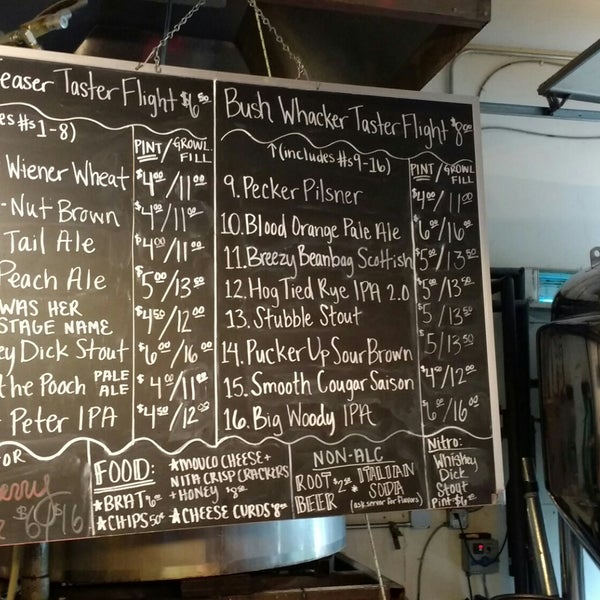 easer Taster Flight $6.50
es #s 1-8)
PINT/GROWL FILL
Wiener Wheat $4.00/11.00
-Nut Brown $4.00/11.00
Tail Ale $4.00/11.00
Peach Ale $5.00/13.50
WAS HER
STAGE NAME $4.50/12.00
ey Dick Stout $6.00/16.00
the Pooch PALE ALE $4.00/11.00
Peter IPA $4.50/12.00
Bush Whacker Taster Flight $8.00
↑(includes #s 9-16)
PINT/GROWL FILL
9. Pecker Pilsner $4.00/11.00
10. Blood Orange Pale Ale $6.00/16.00
11. Breezy Beanbag Scottish $5.00/13.50
12. Hog Tied Rye IPA 2.0 $5.00/13.50
13. Stubble Stout $5.00/13.50
14. Pucker Up Sour Brown $5.00/13.50
15. Smooth Cougar Saison $4.50/12.00
16. Big Woody IPA $6.00/16.00
OR
erry
$6 $16
FOOD:
★BRAT 6.00
★CHIPS 50¢
★MOUCO CHEESE +
NITA CRISP CRACKERS
+ HONEY $8.00
★CHEESE CURDS $8.00
NON-ALC
ROOT BEER $2.50
ITALIAN SODA
(ask server for flavors)
Nitro:
Whiskey
Dick
Stout
Pint $6.00